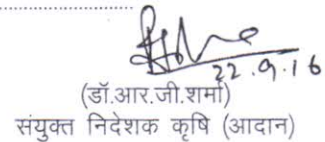 22.9.16
(डॉ.आर.जी.शर्मा)
संयुक्त निदेशक कृषि (आदान)